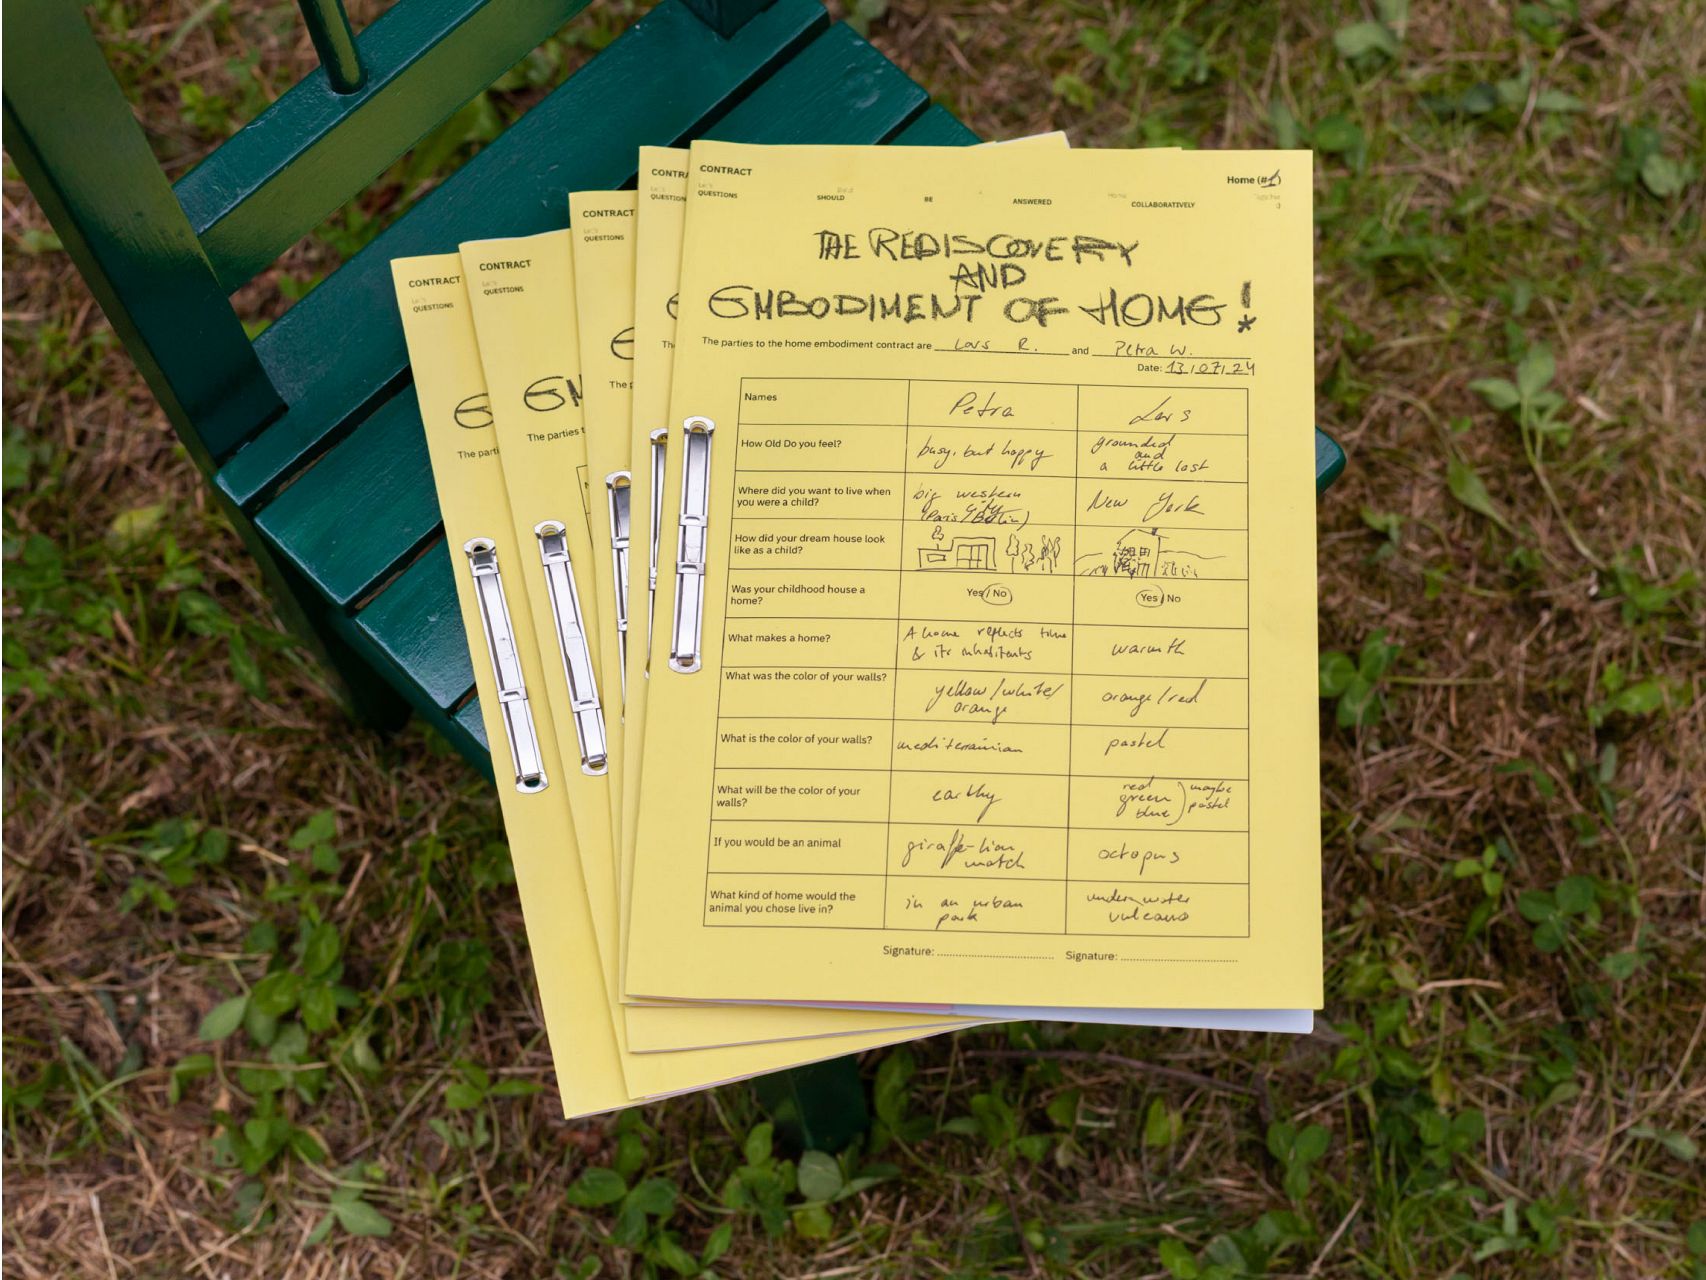 CONTRACT
QUESTIONS
CONTRACT
QUESTIONS
The parti
CONTRACT
QUESTIONS
The parties t
CONTRACT
QUESTIONS
The p
CONTRA
QUESTION
Th
CONTRACT
Home (#1)
QUESTIONS SHOULD BE ANSWERED COLLABORATIVELY
THE REDISCOVERY
AND
EMBODIMENT OF HOME!
*
The parties to the home embodiment contract are Lars R. and Petra W.
Date: 13/07/24
Names Petra Lars
How Old Do you feel? busy, but happy grounded
and
a little lost
Where did you want to live when
you were a child? big western
city
(Paris/Berlin) New York
How did your dream house look
like as a child?
Was your childhood house a
home? Yes / No Yes / No
What makes a home? A home reflects time
& its inhabitants warmth
What was the color of your walls? yellow/white/
orange orange/red
What is the color of your walls? mediterainian pastel
What will be the color of your
walls? earthy red
green
blue maybe
pastel
If you would be an animal giraffe-lion
match octopus
What kind of home would the
animal you chose live in? in an urban
park underwater
vulcano
Signature: Signature: